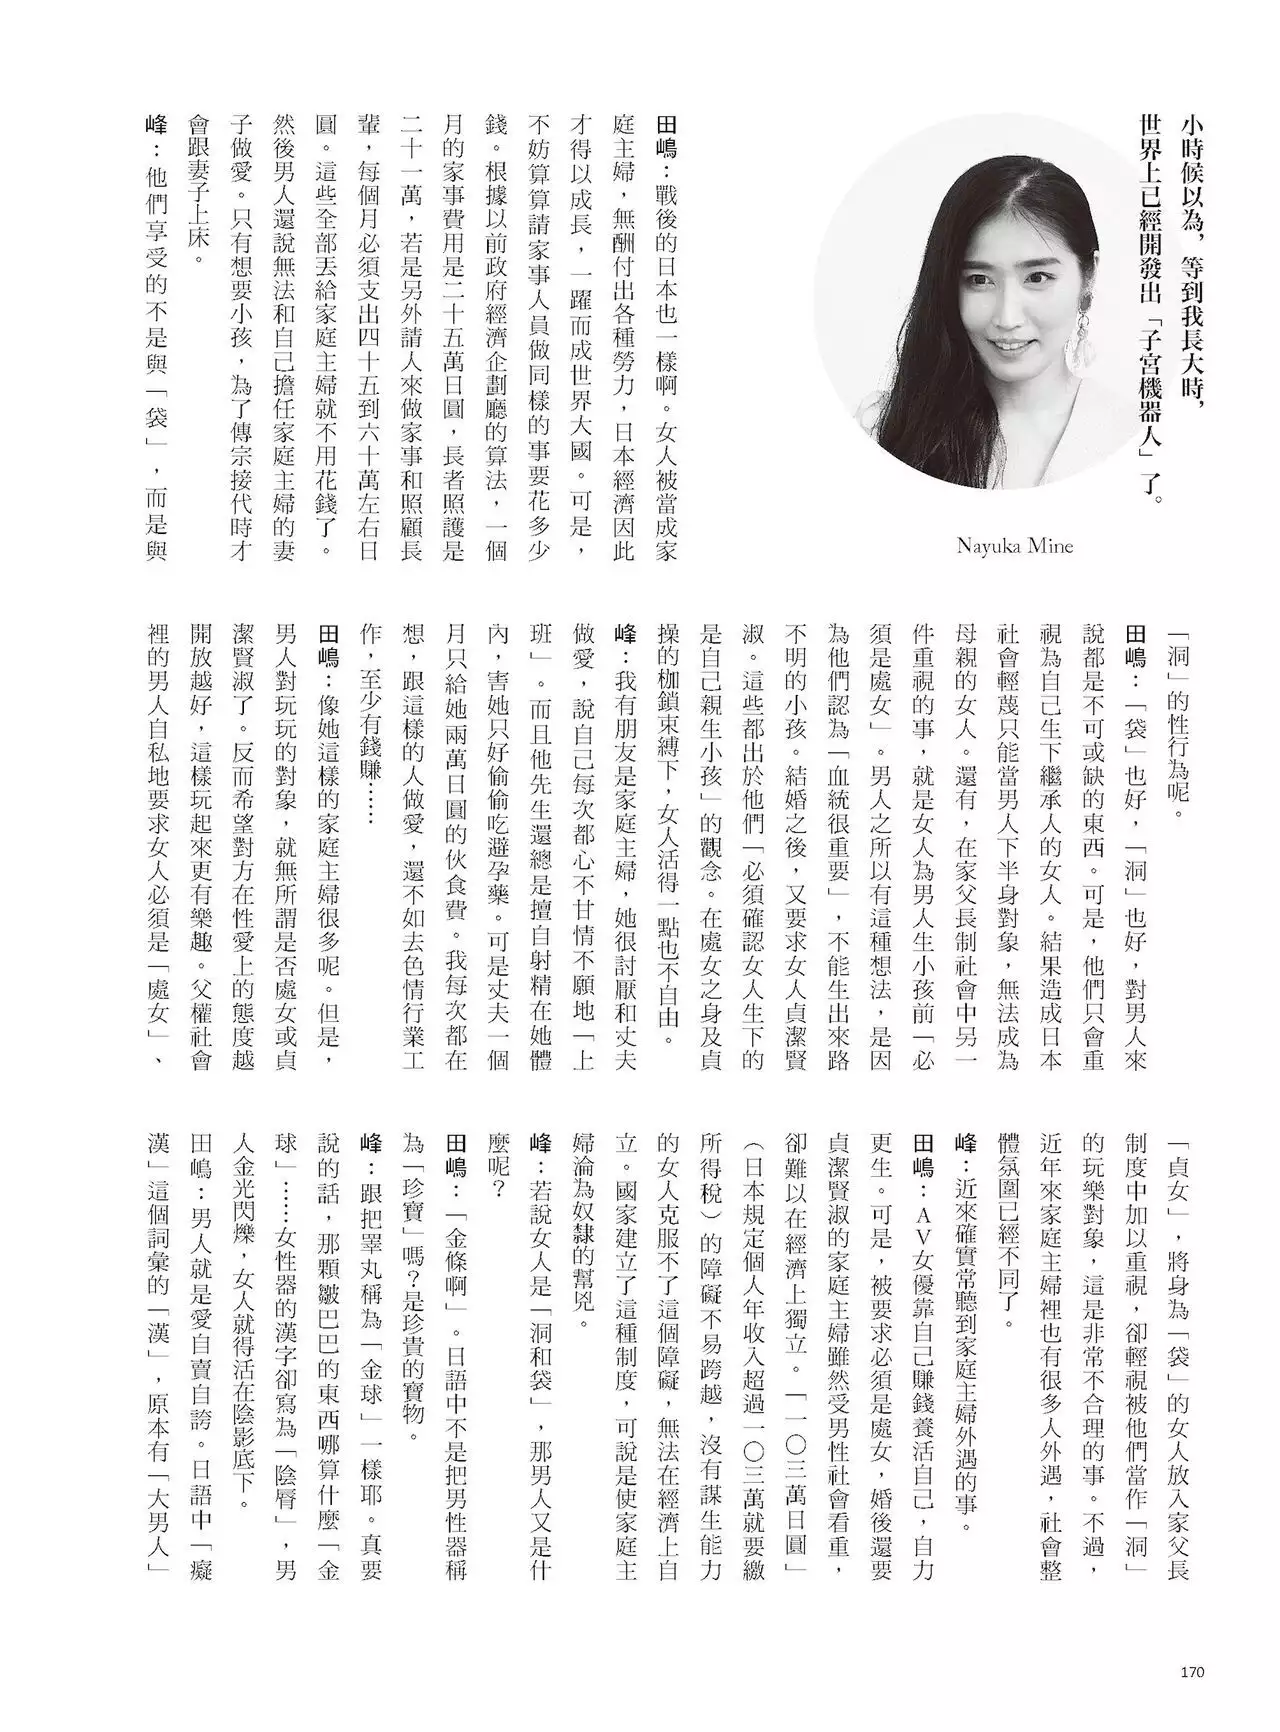 小時候以為，等到我長大時，
世界上已經開發出「子宮機器人」了。
Nayuka Mine
田嶋：戰後的日本也一樣啊。女人被當成家
庭主婦，無酬付出各種勞力，日本經濟因此
才得以成長，一躍而成世界大國。可是，
不妨算算請家事人員做同樣的事要花多少
錢。根據以前政府經濟企劃廳的算法，一個
月的家事費用是二十五萬日圓，長者照護是
二十一萬，若是另外請人來做家事和照顧長
輩，每個月必須支出四十五到六十萬左右日
圓。這些全部丟給家庭主婦就不用花錢了。
然後男人還說無法和自己擔任家庭主婦的妻
子做愛。只有想要小孩，為了傳宗接代時才
會跟妻子上床。
峰：他們享受的不是與「袋」，而是與
「洞」的性行為呢。
田嶋：「袋」也好，「洞」也好，對男人來
說都是不可或缺的東西。可是，他們只會重
視為自己生下繼承人的女人。結果造成日本
社會輕蔑只能當男人下半身對象，無法成為
母親的女人。還有，在家父長制社會中另一
件重視的事，就是女人為男人生小孩前「必
須是處女」。男人之所以有這種想法，是因
為他們認為「血統很重要」，不能生出來路
不明的小孩。結婚之後，又要求女人貞潔賢
淑。這些都出於他們「必須確認女人生下的
是自己親生小孩」的觀念。在處女之身及貞
操的枷鎖束縛下，女人活得一點也不自由。
峰：我有朋友是家庭主婦，她很討厭和丈夫
做愛，說自己每次都心不甘情不願地「上
班」。而且他先生還總是擅自射精在她體
內，害她只好偷偷吃避孕藥。可是丈夫一個
月只給她兩萬日圓的伙食費。我每次都在
想，跟這樣的人做愛，還不如去色情行業工
作，至少有錢賺……
田嶋：像她這樣的家庭主婦很多呢。但是，
男人對玩玩的對象，就無所謂是否處女或貞
潔賢淑了。反而希望對方在性愛上的態度越
開放越好，這樣玩起來更有樂趣。父權社會
裡的男人自私地要求女人必須是「處女」、
「貞女」，將身為「袋」的女人放入家父長
制度中加以重視，卻輕視被他們當作「洞」
的玩樂對象，這是非常不合理的事。不過，
近年來家庭主婦裡也有很多人外遇，社會整
體氛圍已經不同了。
峰：近來確實常聽到家庭主婦外遇的事。
田嶋：AV女優靠自己賺錢養活自己，自力
更生。可是，被要求必須是處女，婚後還要
貞潔賢淑的家庭主婦雖然受男性社會看重，
卻難以在經濟上獨立。「一〇三萬日圓」
（日本規定個人年收入超過一〇三萬就要繳
所得稅）的障礙不易跨越，沒有謀生能力
的女人克服不了這個障礙，無法在經濟上自
立。國家建立了這種制度，可說是使家庭主
婦淪為奴隸的幫兇。
峰：若說女人是「洞和袋」，那男人又是什
麼呢？
田嶋：「金條啊」。日語中不是把男性器稱
為「珍寶」嗎？是珍貴的寶物。
峰：跟把睪丸稱為「金球」一樣耶。真要
說的話，那顆皺巴巴的東西哪算什麼「金
球」……女性器的漢字卻寫為「陰脣」，男
人金光閃爍，女人就得活在陰影底下。
田嶋：男人就是愛自賣自誇。日語中「癡
漢」這個詞彙的「漢」，原本有「大男人」
170